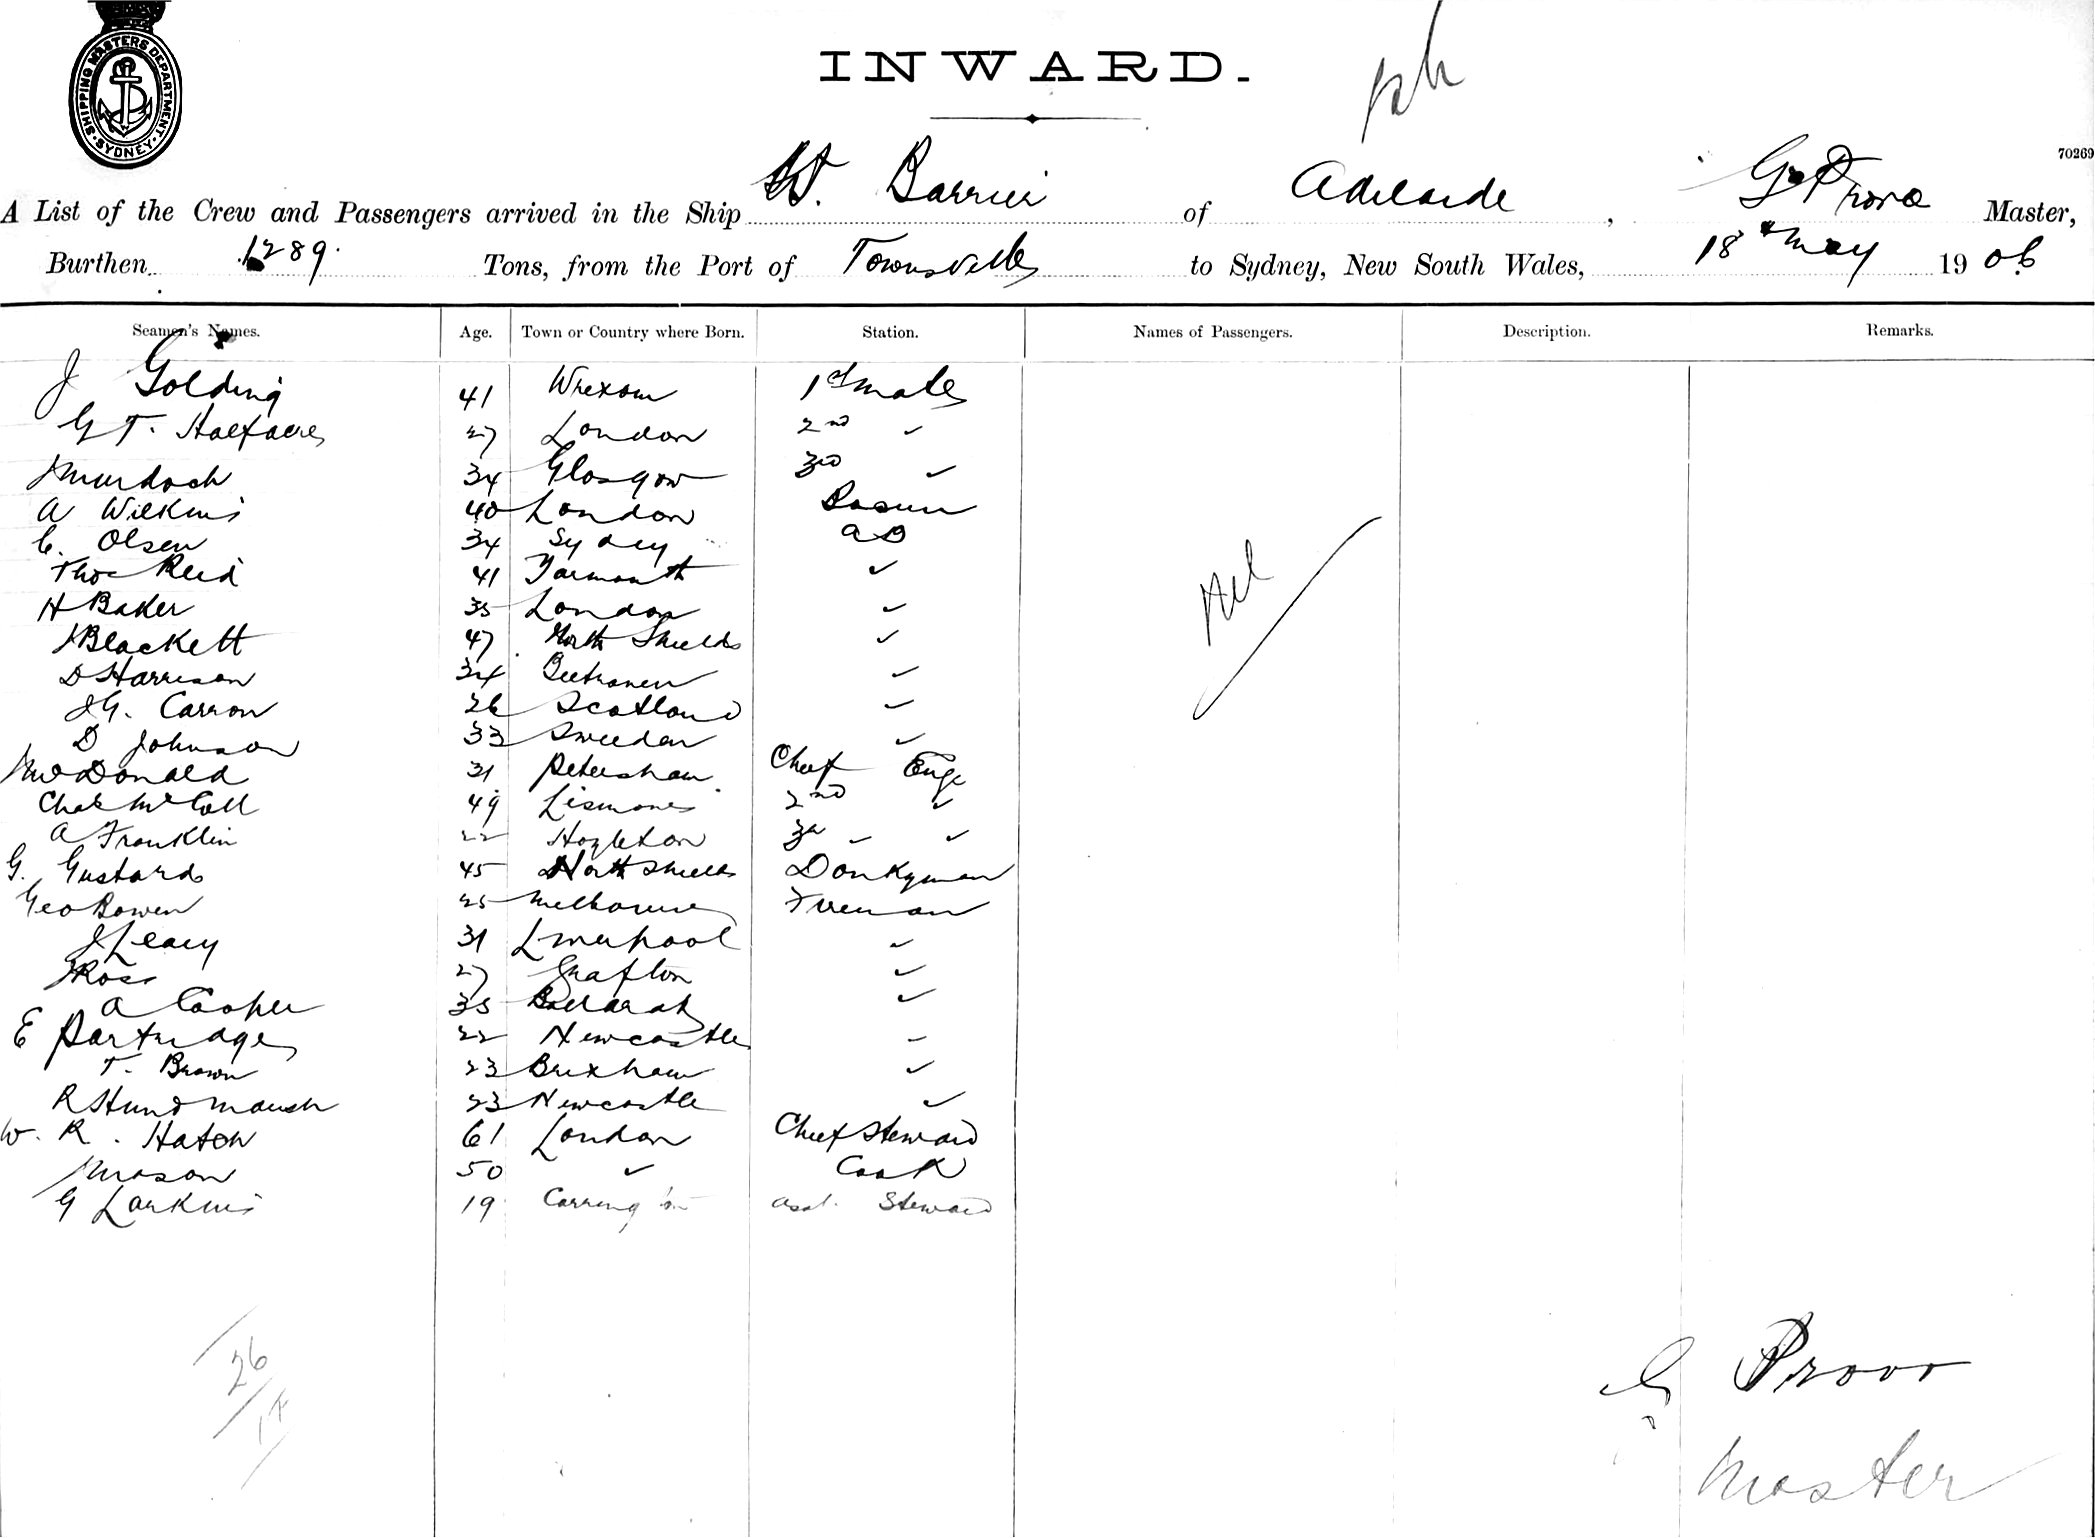 SHIPPING MASTERS DEPARTMENT · SYDNEY ·
INWARD.
70269
A List of the Crew and Passengers arrived in the Ship SS. Barrier of Adelaide, G Provo Master,
Burthen 1289. Tons, from the Port of Townsville to Sydney, New South Wales, 18th May 1906
Seamen's Names. Age. Town or Country where Born. Station. Names of Passengers. Description. Remarks.
J Golding 41 Wrexom 1st mate
G T. Halfacre 27 London 2nd ✓
J Murdoch 34 Glasgow 3rd ✓
A Wilkins 40 London Bosun
C. Olsen 34 Sydney AB
Thos Reid 41 Yarmouth ✓
H Baker 35 London ✓
J Blackett 47 North Shields ✓
D Harrison 34 ✓
J G. Carron 26 Scotland ✓
D Johnson 33 Sweeden ✓
McDonald 31 Petersham Chief Eng
Chas McColl 49 Lismore 2nd ✓
A Franklin 22 3rd ✓ ✓
G. Gustard 45 North Shields Donkyman
Geo Bowen 25 Melbourne Fireman
J Leary 31 Liverpool ✓
J Ross 27 Grafton ✓
A Cooper 35 Ballarat ✓
E Partridge 22 Newcastle ✓
T. Brown 23 Brixham ✓
R Hundmarsh 23 Newcastle ✓
W. R. Hatch 61 London Chief Steward
J Mason 50 ✓ Cook
G Larkins 19 Carring'tn asst. Steward
Nil
26
G Provo
Master